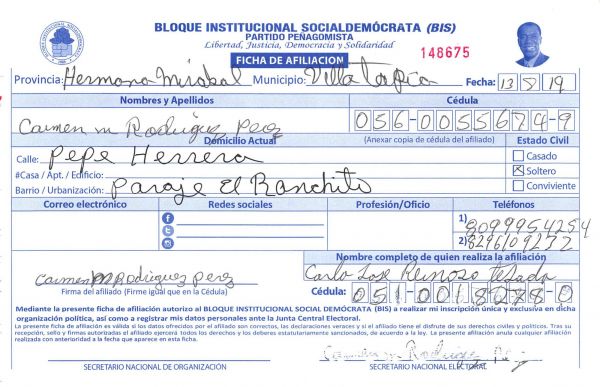 BLOQUE INSTITUCIONAL SOCIALDEMÓCRATA (BIS)
PARTIDO PEÑAGOMISTA
Libertad, Justicia, Democracia y Solidaridad
FICHA DE AFILIACION
148675
Provincia: Hermana Mirabal Municipio: Villa Tapia Fecha: 13 5 19
Nombres y Apellidos
Cédula
Carmen M Rodriguez Perez
056-0055674-9
Domicilio Actual
(Anexar copia de cédula del afiliado)
Calle: Pepe Herrera
#Casa / Apt. / Edificio:
Barrio / Urbanización: Paraje El Ranchito
Estado Civil
Casado
Soltero
Conviviente
Correo electrónico
Redes sociales
Profesión/Oficio
Teléfonos
1) 8099954254
2) 8296109232
Nombre completo de quien realiza la afiliación
Carlo Jose Reinoso Tejada
Cédula: 051-0018278-0
Carmen M Rodriguez Perez
Firma del afiliado (Firme igual que en la Cédula)
Mediante la presente ficha de afiliación autorizo al BLOQUE INSTITUCIONAL SOCIAL DEMÓCRATA (BIS) a realizar mi inscripción única y exclusiva en dicha
organización política, así como a registrar mis datos personales ante la Junta Central Electoral.
La presente ficha de afiliación es válida si los datos ofrecidos por el afiliado son correctos, las declaraciones veraces y si el afiliado tiene el disfrute de sus derechos civiles y políticos. Tras su
recepción, sello y firmas autorizadas el afiliado ejercerá todos los derechos y los deberes estatutariamente sancionados, de acuerdo a la ley. La presente afiliación anula cualquier afiliación
realizada con anterioridad a la fecha que aparece en esta ficha.
Carmen M Rodriguez Perez
SECRETARIO NACIONAL DE ORGANIZACIÓN
SECRETARIO NACIONAL ELECTORAL